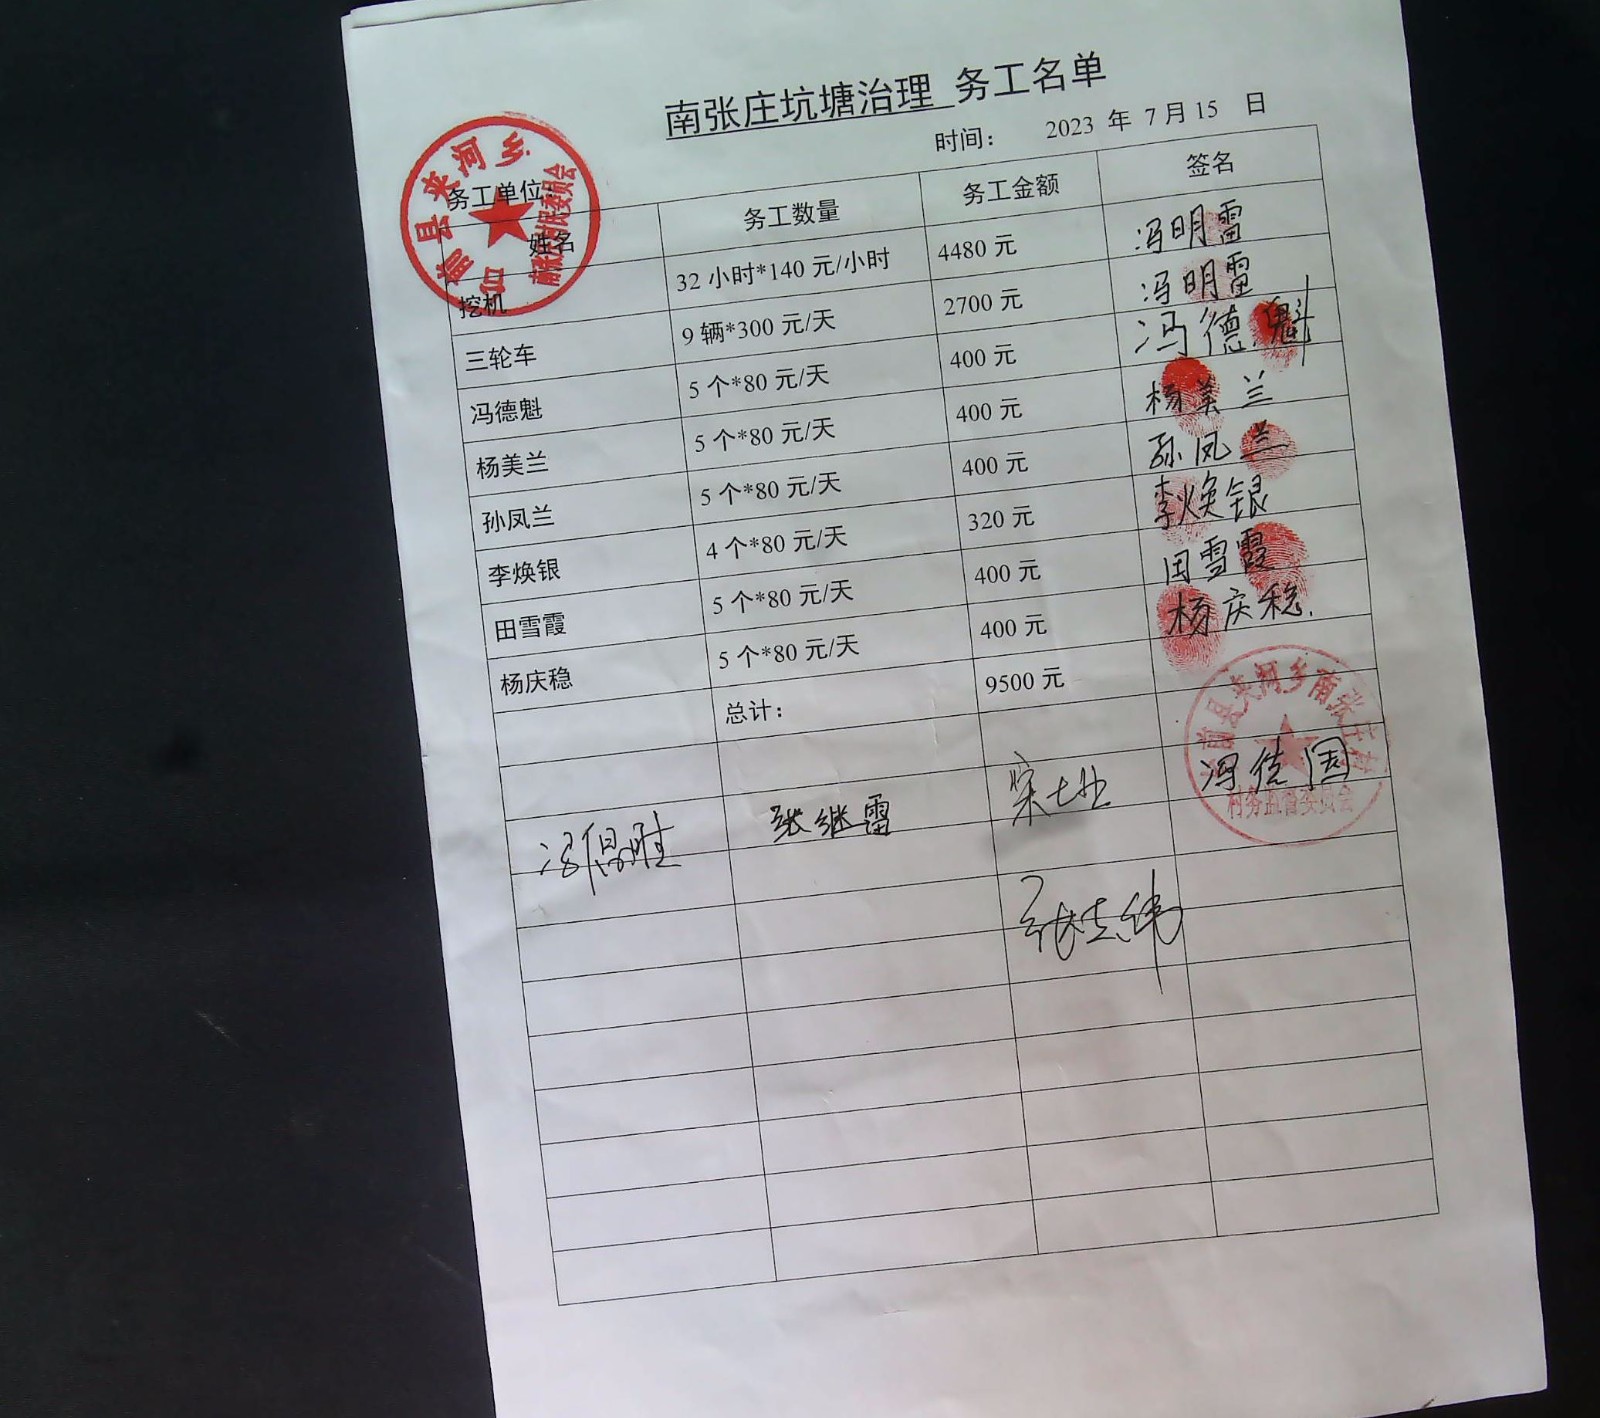 南张庄坑塘治理 务工名单
时间： 2023 年 7 月 15 日
务工单位：
姓名 务工数量 务工金额 签名
挖机 32 小时*140 元/小时 4480 元 冯明雷
三轮车 9 辆*300 元/天 2700 元 冯明雷
冯德魁 5 个*80 元/天 400 元 冯德魁
杨美兰 5 个*80 元/天 400 元 杨美兰
孙凤兰 5 个*80 元/天 400 元 孙凤兰
李焕银 4 个*80 元/天 320 元 李焕银
田雪霞 5 个*80 元/天 400 元 田雪霞
杨庆稳 5 个*80 元/天 400 元 杨庆稳
总计： 9500 元
张继雷 冯德国
前县夹河乡
南张庄村村民委员会
前县夹河乡南张庄村
村务监督委员会